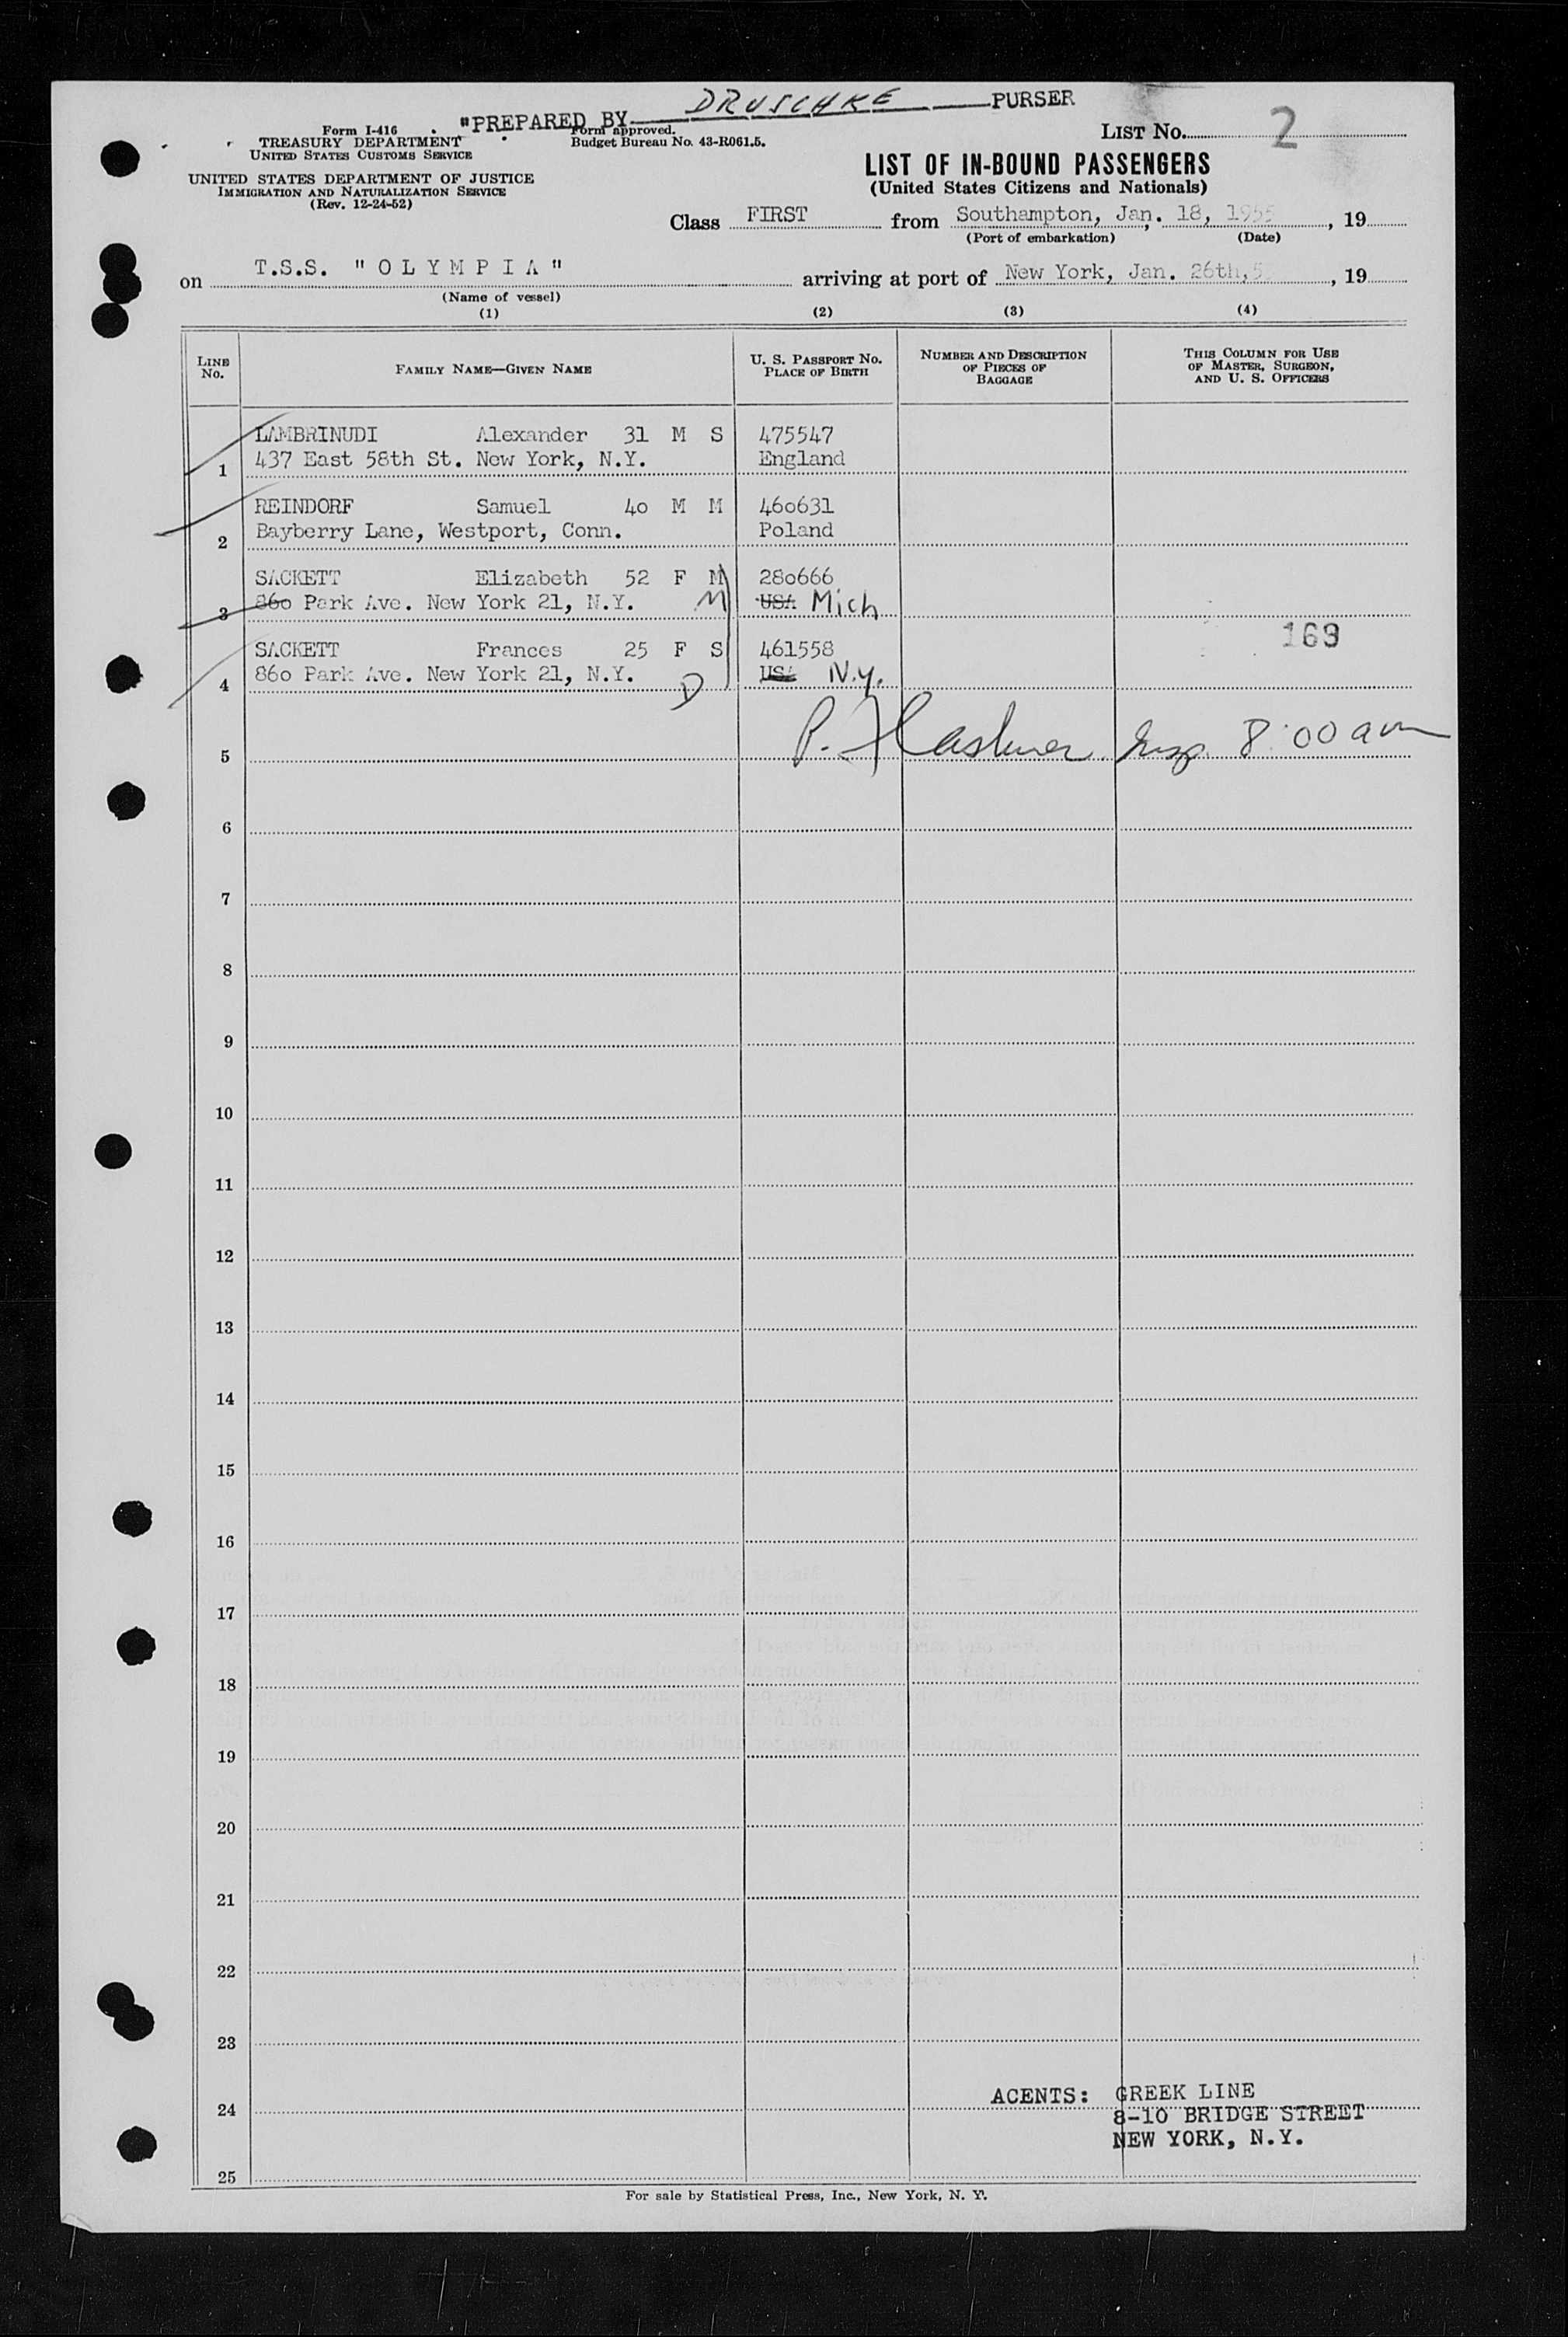 "PREPARED BY DRUSCHKE PURSER
Form I-416
TREASURY DEPARTMENT
UNITED STATES CUSTOMS SERVICE
Form approved.
Budget Bureau No. 43-R061.5.
UNITED STATES DEPARTMENT OF JUSTICE
IMMIGRATION AND NATURALIZATION SERVICE
(Rev. 12-24-52)
LIST NO. 2
LIST OF IN-BOUND PASSENGERS
(United States Citizens and Nationals)
Class FIRST from Southampton, Jan. 18, 1955, 19
(Port of embarkation) (Date)
on T.S.S. "OLYMPIA" arriving at port of New York, Jan. 26th, 5, 19
(Name of vessel)
(1) (2) (3) (4)
LINE NO. FAMILY NAME—GIVEN NAME U. S. PASSPORT NO. PLACE OF BIRTH NUMBER AND DESCRIPTION OF PIECES OF BAGGAGE THIS COLUMN FOR USE OF MASTER, SURGEON, AND U. S. OFFICERS
LAMBRINUDI Alexander 31 M S 475547
1 437 East 58th St. New York, N.Y. England
REINDORF Samuel 40 M M 460631
2 Bayberry Lane, Westport, Conn. Poland
SACKETT Elizabeth 52 F M 280666
3 860 Park Ave. New York 21, N.Y. M USA Mich
169
SACKETT Frances 25 F S 461558
4 860 Park Ave. New York 21, N.Y. D USA N.Y.
5 P. Insp. 8:00 am
6
7
8
9
10
11
12
13
14
15
16
17
18
19
20
21
22
23
24
25
AGENTS: GREEK LINE
8-10 BRIDGE STREET
NEW YORK, N.Y.
For sale by Statistical Press, Inc., New York, N. Y.